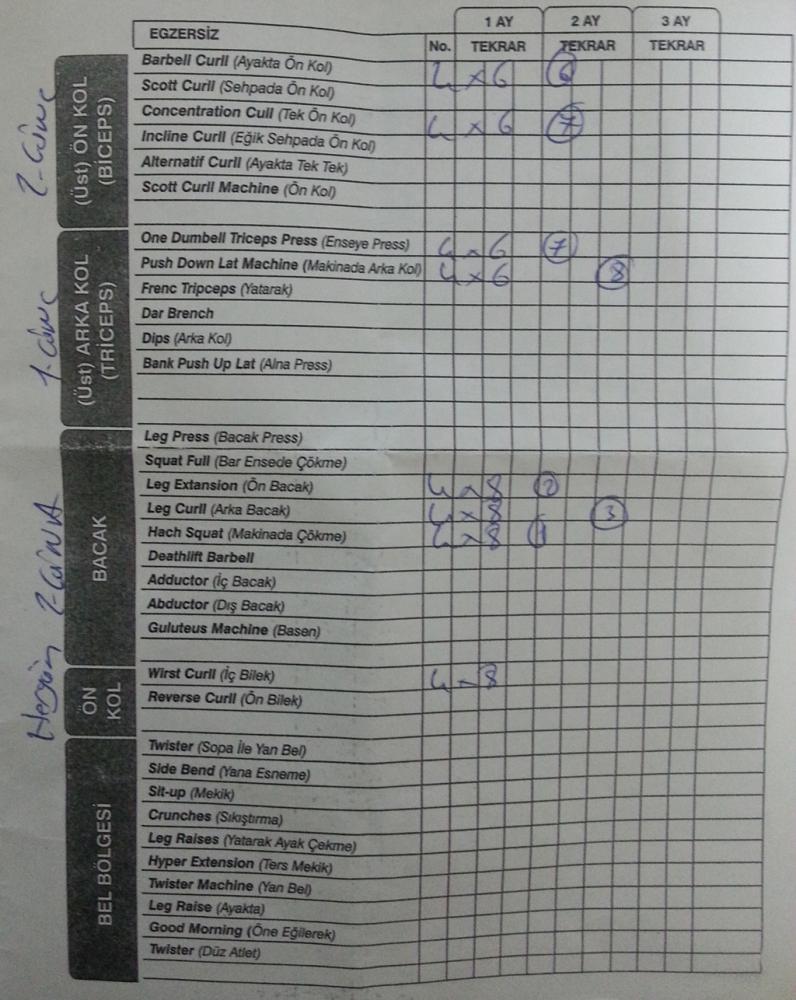 1 AY 2 AY 3 AY
EGZERSİZ No. TEKRAR TEKRAR TEKRAR
2-Günc
(Üst) ÖN KOL
(BİCEPS)
Barbell Curll (Ayakta Ön Kol) 4 x 6 6
Scott Curll (Sehpada Ön Kol)
Concentration Cull (Tek Ön Kol) 4 x 6 7
Incline Curll (Eğik Sehpada Ön Kol)
Alternatif Curll (Ayakta Tek Tek)
Scott Curll Machine (Ön Kol)
1-Günc
(Üst) ARKA KOL
(TRİCEPS)
One Dumbell Triceps Press (Enseye Press) 4 x 6 7
Push Down Lat Machine (Makinada Arka Kol) 4 x 6 8
Frenc Tripceps (Yatarak)
Dar Brench
Dips (Arka Kol)
Bank Push Up Lat (Alna Press)
2-GÜNLÜ
BACAK
Leg Press (Bacak Press)
Squat Full (Bar Ensede Çökme)
Leg Extansion (Ön Bacak) 4 x 8 2
Leg Curll (Arka Bacak) 4 x 8 3
Hach Squat (Makinada Çökme) 4 x 8 1
Deathlift Barbell
Adductor (İç Bacak)
Abductor (Dış Bacak)
Guluteus Machine (Basen)
Hergün
ÖN
KOL
Wirst Curll (İç Bilek) 4 x 8
Reverse Curll (Ön Bilek)
BEL BÖLGESİ
Twister (Sopa İle Yan Bel)
Side Bend (Yana Esneme)
Sit-up (Mekik)
Crunches (Sıkıştırma)
Leg Raises (Yatarak Ayak Çekme)
Hyper Extension (Ters Mekik)
Twister Machine (Yan Bel)
Leg Raise (Ayakta)
Good Morning (Öne Eğilerek)
Twister (Düz Atlet)